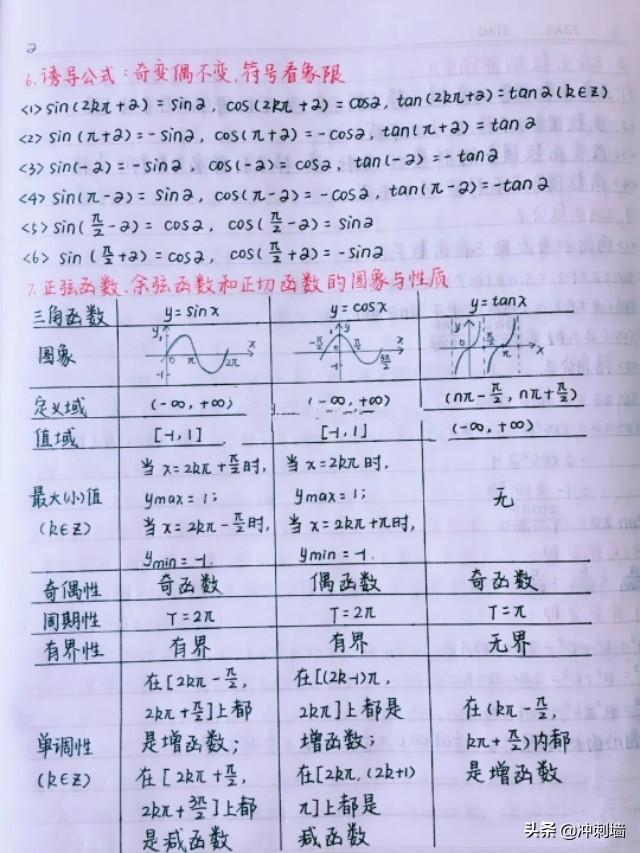 DATE PAGE
2
6.诱导公式:奇变偶不变,符号看象限
<1> sin(2kπ+2)=sin2, cos(2kπ+2)=cos2, tan(2kπ+2)=tan2(k∈Z)
<2> sin(π+2)=-sin2, cos(π+2)=-cos2, tan(π+2)=tan2
<3> sin(-2)=-sin2, cos(-2)=cos2, tan(-2)=-tan2
<4> sin(π-2)=sin2, cos(π-2)=-cos2, tan(π-2)=-tan2
<5> sin(π/2-2)=cos2, cos(π/2-2)=sin2
<6> sin(π/2+2)=cos2, cos(π/2+2)=-sin2
7.正弦函数、余弦函数和正切函数的图象与性质
三角函数 y=sinx y=cosx y=tanx
图象
定义域 (-∞,+∞) (-∞,+∞) (nπ-π/2, nπ+π/2)
值域 [-1,1] [-1,1] (-∞,+∞)
最大(小)值
(k∈Z)
当x=2kπ+π/2时,
ymax=1;
当x=2kπ-π/2时,
ymin=-1.
当x=2kπ时,
ymax=1;
当x=2kπ+π时,
ymin=-1.
无
奇偶性 奇函数 偶函数 奇函数
周期性 T=2π T=2π T=π
有界性 有界 有界 无界
单调性
(k∈Z)
在[2kπ-π/2,
2kπ+π/2]上都
是增函数;
在[2kπ+π/2,
2kπ+3π/2]上都
是减函数
在[(2k-1)π,
2kπ]上都是
增函数;
在[2kπ,(2k+1)
π]上都是
减函数
在(kπ-π/2,
kπ+π/2)内都
是增函数
头条@冲刺墙